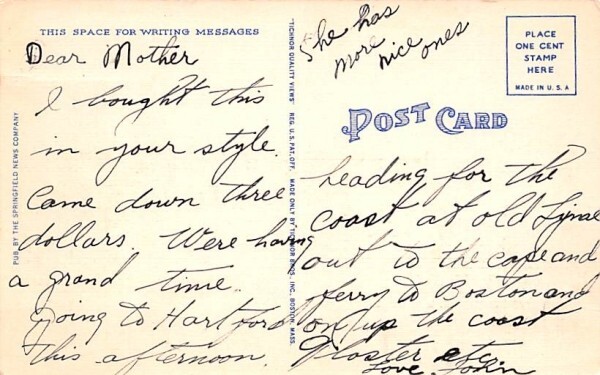 THIS SPACE FOR WRITING MESSAGES
Dear Mother
I bought this
in your style.
Came down three
dollars. Were having
a grand time.
Going to Hartford
this afternoon.
PUB. BY THE SPRINGFIELD NEWS COMPANY
"TICHNOR QUALITY VIEWS" REG. U. S. PAT. OFF. MADE ONLY BY TICHNOR BROS. INC. BOSTON, MASS.
She has
more nice ones
PLACE
ONE CENT
STAMP
HERE
MADE IN U. S. A
POST CARD
heading for the
coast at old Lyme
out to the cape and
ferry to Boston and
on up the coast
Gloster etc.
Love, John